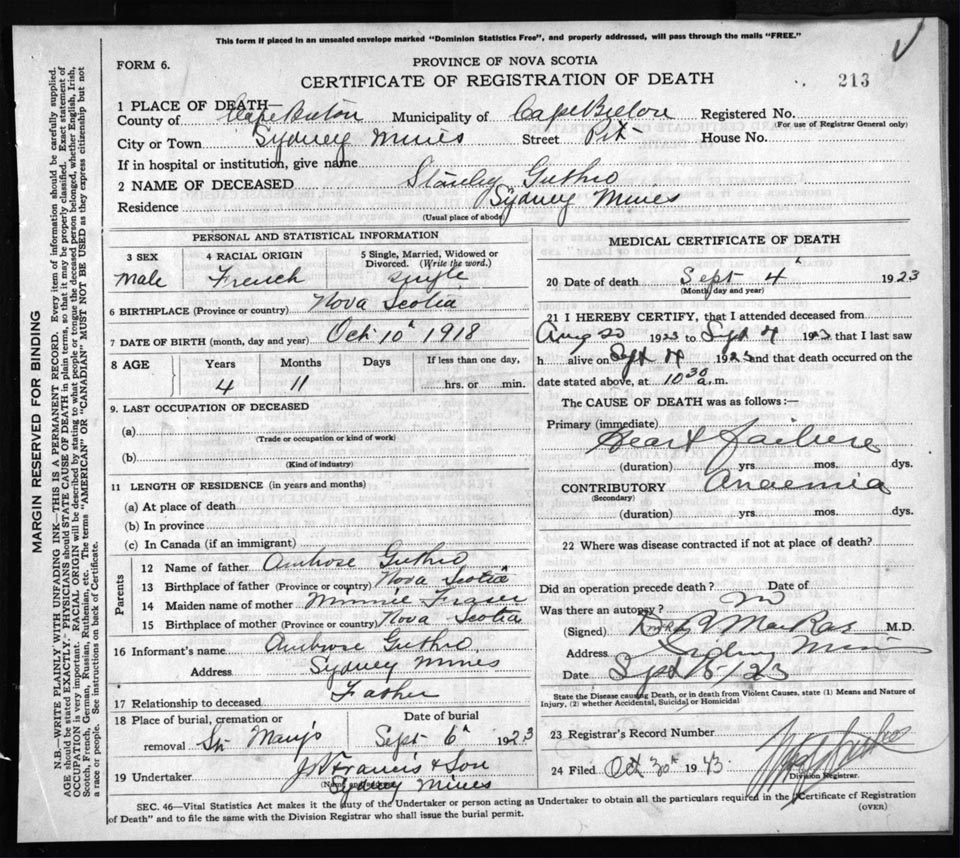 This form if placed in an unsealed envelope marked "Dominion Statistics Free", and properly addressed, will pass through the mails "FREE."
FORM 6.
PROVINCE OF NOVA SCOTIA
CERTIFICATE OF REGISTRATION OF DEATH
213
1 PLACE OF DEATH—
County of Cape Breton Municipality of Cape Breton Registered No.
(For use of Registrar General only)
City or Town Sydney Mines Street House No.
If in hospital or institution, give name
2 NAME OF DECEASED Stanley Guthro
Residence Sydney Mines
(Usual place of abode)
PERSONAL AND STATISTICAL INFORMATION
3 SEX
Male
4 RACIAL ORIGIN
French
5 Single, Married, Widowed or Divorced. (Write the word.)
Single
6 BIRTHPLACE (Province or country) Nova Scotia
7 DATE OF BIRTH (month, day and year) Oct 10th 1918
8 AGE
Years
4
Months
11
Days
If less than one day,
hrs. or min.
9. LAST OCCUPATION OF DECEASED
(a)
(Trade or occupation or kind of work)
(b)
(Kind of industry)
11 LENGTH OF RESIDENCE (in years and months)
(a) At place of death
(b) In province
(c) In Canada (if an immigrant)
Parents
12 Name of father Ambrose Guthro
13 Birthplace of father (Province or country) Nova Scotia
14 Maiden name of mother Minnie Fraser
15 Birthplace of mother (Province or country) Nova Scotia
16 Informant's name Ambrose Guthro
Address Sydney Mines
17 Relationship to deceased Father
18 Place of burial, cremation or
removal St. Mary's
Date of burial
Sept 6th 1923
19 Undertaker J Francis & Son
Sydney Mines
MEDICAL CERTIFICATE OF DEATH
20 Date of death Sept 4th 1923
(Month, day and year)
21 I HEREBY CERTIFY, that I attended deceased from
Aug 20 1923 to Sept 4 1923 that I last saw
h alive on Sept 4 1923 and that death occurred on the
date stated above, at 10 30 a.m.
The CAUSE OF DEATH was as follows:—
Primary (immediate)
Heart failure
(duration) yrs. mos. dys.
CONTRIBUTORY Anaemia
(Secondary)
(duration) yrs. mos. dys.
22 Where was disease contracted if not at place of death?
Did an operation precede death? Date of
Was there an autopsy? No
(Signed) MacRae M.D.
Address Sydney Mines
Date Sept 5/23
State the Disease causing Death, or in death from Violent Causes, state (1) Means and Nature of
Injury, (2) whether Accidental, Suicidal or Homicidal
23 Registrar's Record Number
24 Filed Oct 30th 1923
Division Registrar.
SEC. 46—Vital Statistics Act makes it the duty of the Undertaker or person acting as Undertaker to obtain all the particulars required in the "Certificate of Registration
of Death" and to file the same with the Division Registrar who shall issue the burial permit.
(OVER)
MARGIN RESERVED FOR BINDING
N.B.—WRITE PLAINLY WITH UNFADING INK—THIS IS A PERMANENT RECORD. Every item of information should be carefully supplied.
AGE should be stated EXACTLY. PHYSICIANS should STATE CAUSE OF DEATH in plain terms, so that it may be properly classified. Exact statement of
OCCUPATION is very important. RACIAL ORIGIN will be described by stating to what people or tongue the deceased person belonged, whether English, Irish,
Scotch, French, German, Russian, Ruthenian, etc. The terms "AMERICAN" OR "CANADIAN" MUST NOT BE USED as they express citizenship but not
a race or people. See instructions on back of Certificate.